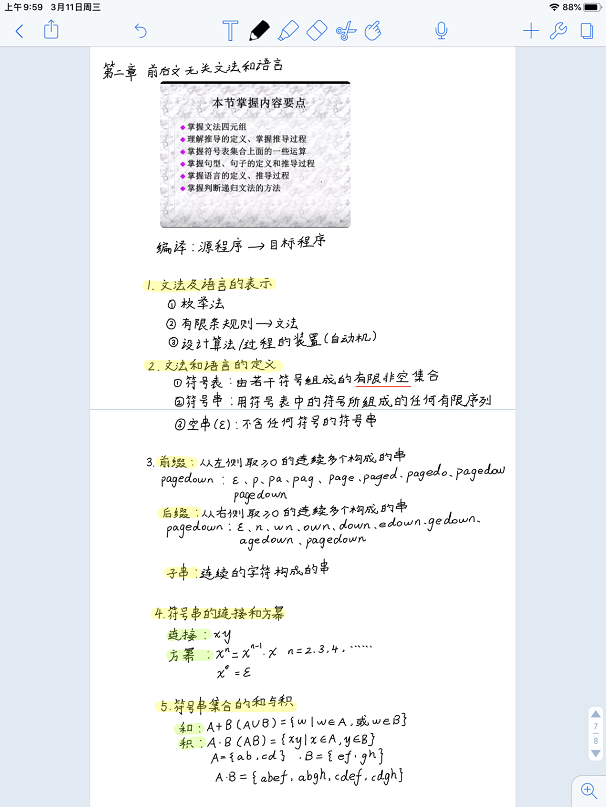 上午9:59 3月11日周三
88%
第二章 前后文无关文法和语言
本节掌握内容要点
掌握文法四元组
理解推导的定义、掌握推导过程
掌握符号表集合上面的一些运算
掌握句型、句子的定义和推导过程
掌握语言的定义、推导过程
掌握判断递归文法的方法
编译:源程序→目标程序
1.文法及语言的表示
①枚举法
②有限条规则→文法
③设计算法/过程的装置(自动机)
2.文法和语言的定义
①符号表:由若干符号组成的有限非空集合
②符号串:用符号表中的符号所组成的任何有限序列
③空串(ε):不含任何符号的符号串
3.前缀:从左侧取≥0的连续多个构成的串
pagedown:ε、p、pa、pag、page、paged、pagedo、pagedow
pagedown
后缀:从右侧取≥0的连续多个构成的串
pagedown:ε、n、wn、own、down、edown、gedown、
agedown、pagedown
子串:连续的字符构成的串
4.符号串的连接和方幂
连接:xy
方幂:xⁿ=xⁿ⁻¹·x n=2.3.4.……
x⁰=ε
5.符号串集合的和与积
和:A+B(A∪B)={w|w∈A,或w∈B}
积:A·B(AB)={xy|x∈A,y∈B}
A={ab,cd}.B={ef,gh}
A·B={abef,abgh,cdef,cdgh}
7
8